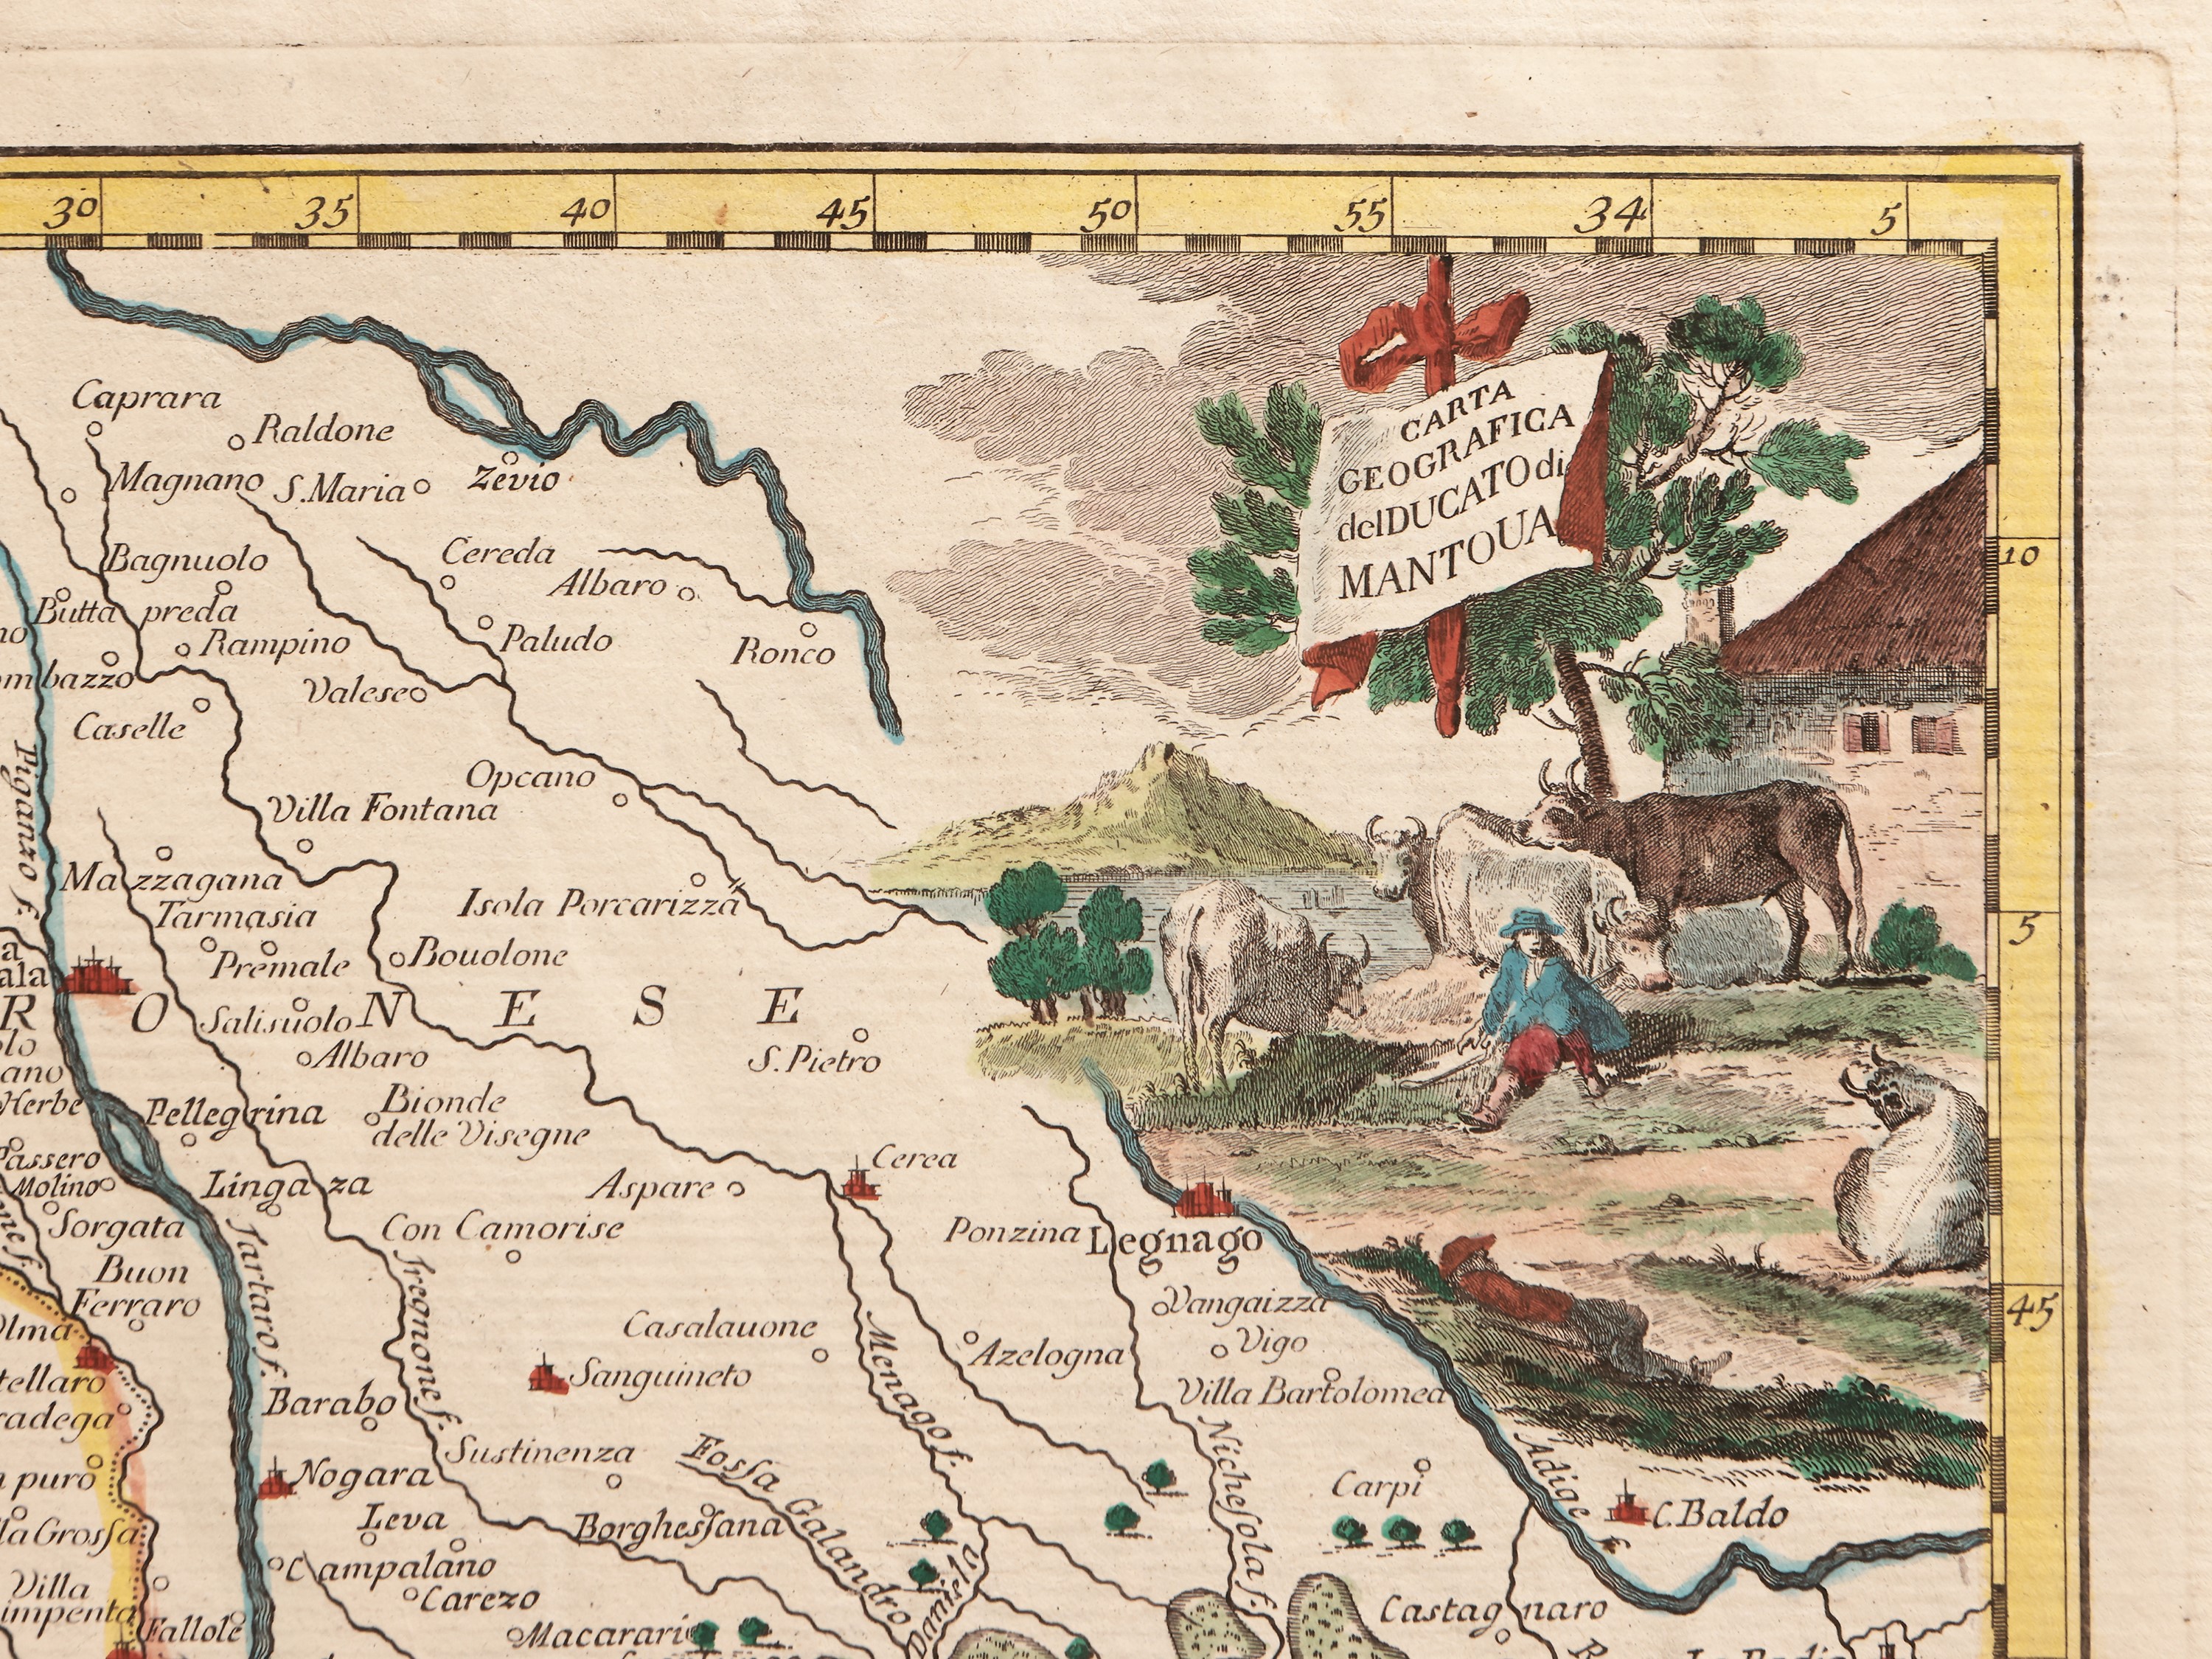 30 35 40 45 50 55 34 5
CARTA
GEOGRAFICA
delDUCATOdi
MANTOUA
10
5
45
Caprara
Raldone
Magnano
S.Maria
Zevio
Bagnuolo
Cereda
Albaro
Butta preda
Rampino
Paludo
Ronco
bazzo
Valese
Caselle
Piganzo f.
Opcano
Villa Fontana
Mazzagana
Tarmasia
Isola Porcarizza
Premale
Bouolone
ala
R O N E S E
Salisuolo
Albaro
S.Pietro
Herbe
Pellegrina
Bionde
delle Visegne
Passero
Molino
Lingazza
Aspare
Cerea
Sorgata
Con Camorise
Ponzina
Legnago
Buon
Ferraro
Tartaro f.
Tregnone f.
Vangaizza
Casalauone
Menago f.
Azelogna
Vigo
Sanguineto
Villa Bartolomea
Barabo
Nichesola f.
Sustinenza
Fossa Galandro
Adige f.
Nogara
Carpi
C.Baldo
Leva
Borghessana
la Grossa
Campalano
Carezo
Villa
impenta
Fallole
Macarari
Castagnaro